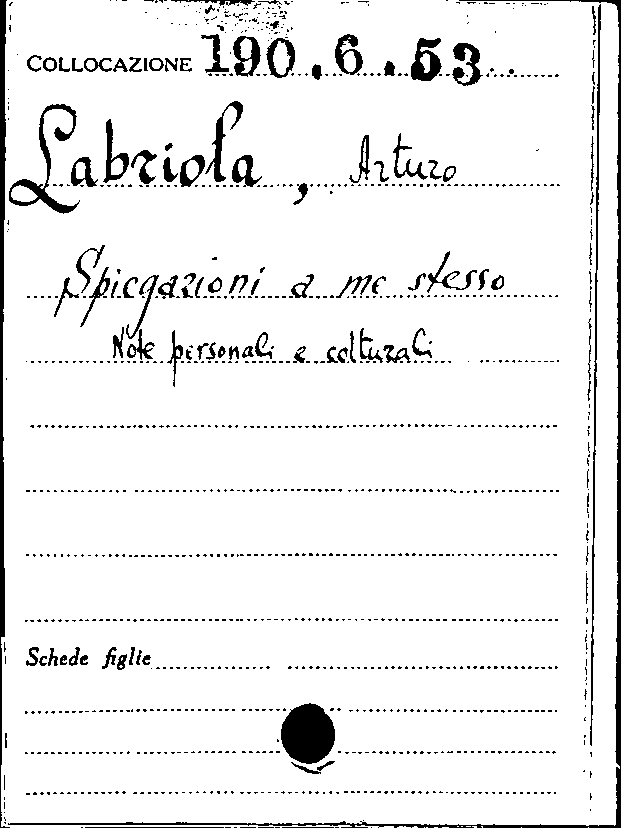 COLLOCAZIONE 190.6.53
Labriola, Arturo
Spiegazioni a me stesso
Note personali e colturali
Schede figlie